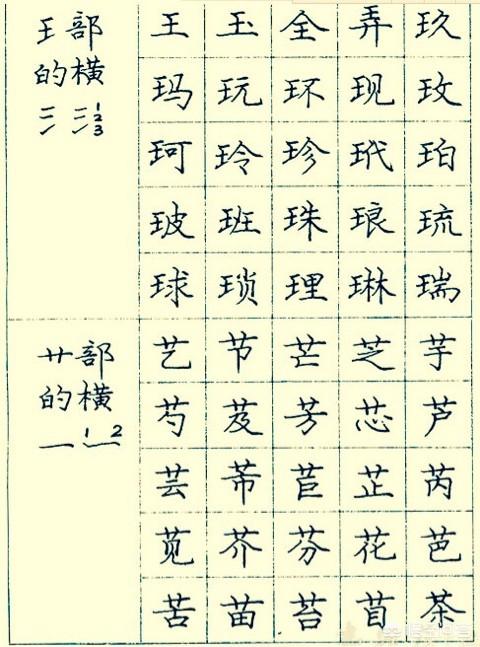 王部
的横
三 三 1 2 3
王 玉 全 弄 玖
玛 玩 环 现 玫
珂 玲 珍 玳 珀
玻 班 珠 琅 琉
球 琐 理 琳 瑞
艹部
的横
一 1 2
艺 节 芒 芝 芋
芍 芨 芳 芯 芦
芸 芾 苣 芷 芮
苋 芥 芬 花 芭
苦 苗 苔 苜 茶